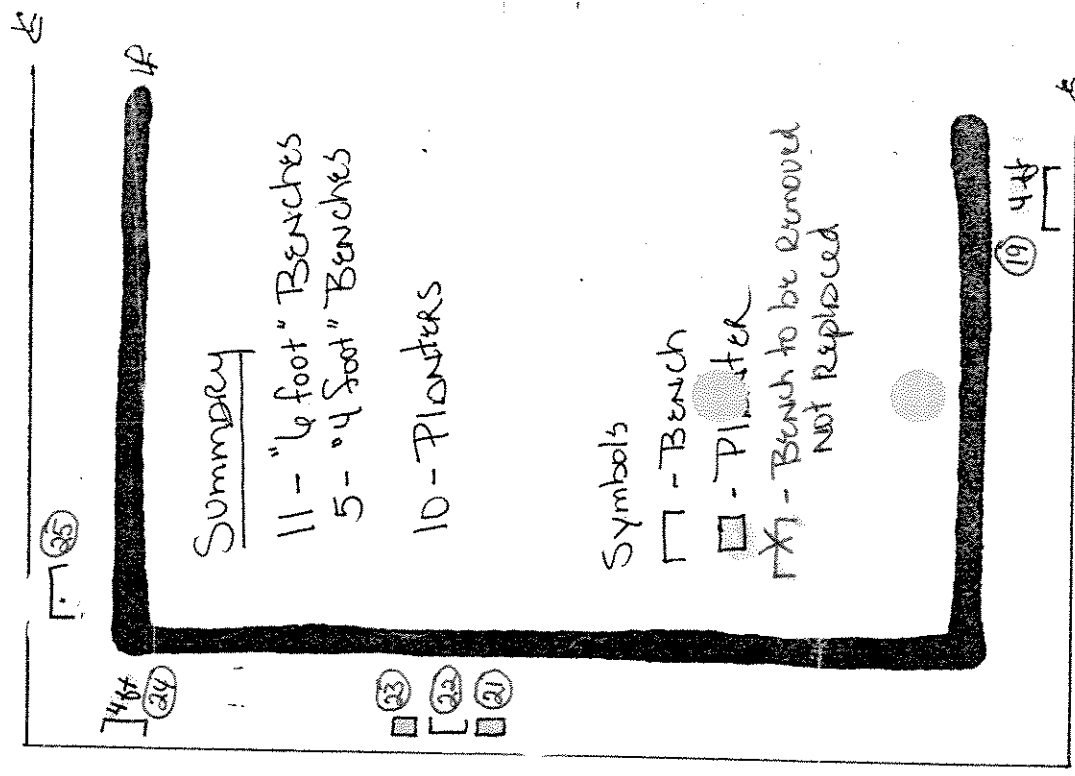 Summary
11 - "6 foot" Benches
5 - "4 foot" Benches
10 - Planters
Symbols
- Bench
- Pl...ter
X - Bench to be Removed
Not Replaced
25
4 ft
24
23
22
21
19
4 ft